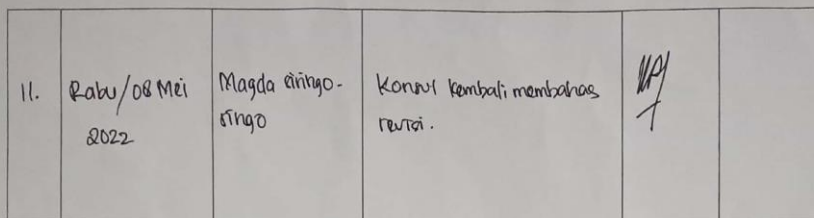 11.
Rabu/08 Mei
2022
Magda siringo-
ringo
Konsul kembali membahas
revisi.